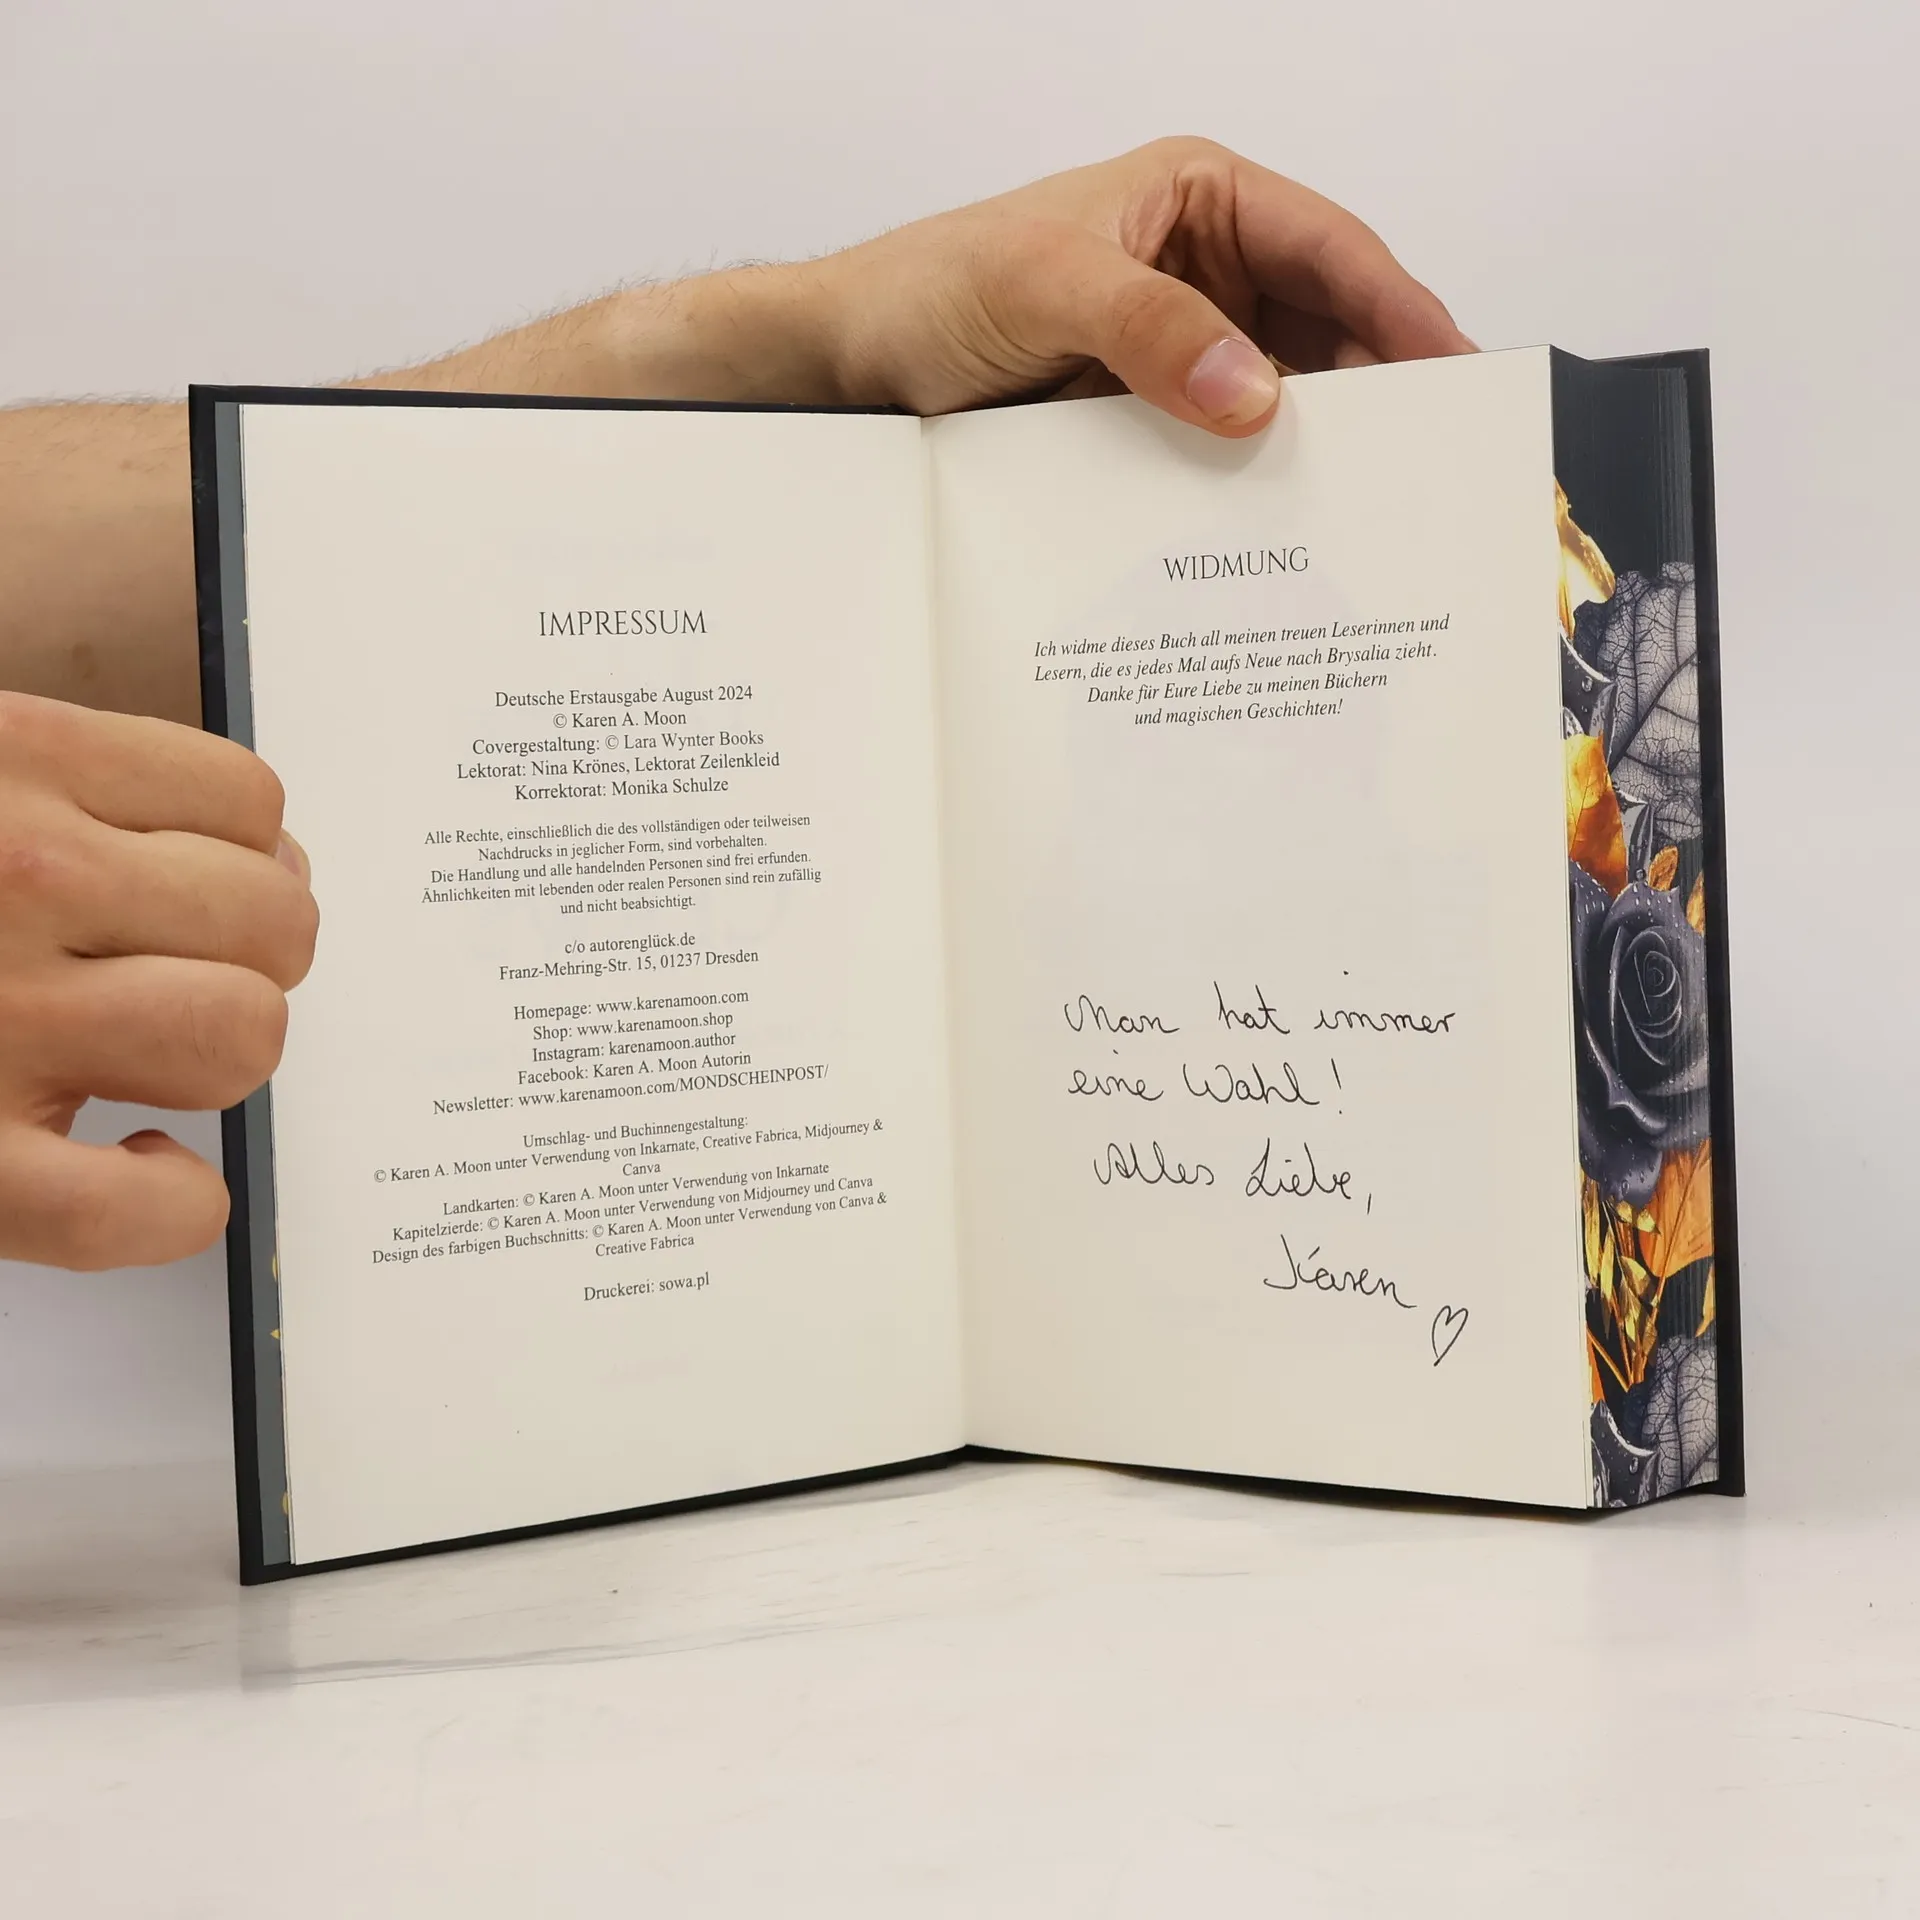 IMPRESSUM
Deutsche Erstausgabe August 2024
© Karen A. Moon
Covergestaltung: © Lara Wynter Books
Lektorat: Nina Krönes, Lektorat Zeilenkleid
Korrektorat: Monika Schulze
Alle Rechte, einschließlich die des vollständigen oder teilweisen
Nachdrucks in jeglicher Form, sind vorbehalten.
Die Handlung und alle handelnden Personen sind frei erfunden.
Ähnlichkeiten mit lebenden oder realen Personen sind rein zufällig
und nicht beabsichtigt.
c/o autorenglück.de
Franz-Mehring-Str. 15, 01237 Dresden
Homepage: www.karenamoon.com
Shop: www.karenamoon.shop
Instagram: karenamoon.author
Facebook: Karen A. Moon Autorin
Newsletter: www.karenamoon.com/MONDSCHEINPOST/
Umschlag- und Buchinnengestaltung:
© Karen A. Moon unter Verwendung von Inkarnate, Creative Fabrica, Midjourney &
Canva
Landkarten: © Karen A. Moon unter Verwendung von Inkarnate
Kapitelzierde: © Karen A. Moon unter Verwendung von Midjourney und Canva
Design des farbigen Buchschnitts: © Karen A. Moon unter Verwendung von Canva &
Creative Fabrica
Druckerei: sowa.pl
WIDMUNG
Ich widme dieses Buch all meinen treuen Leserinnen und
Lesern, die es jedes Mal aufs Neue nach Brysalia zieht.
Danke für Eure Liebe zu meinen Büchern
und magischen Geschichten!
Man hat immer
eine Wahl!
Alles Liebe,
Karen